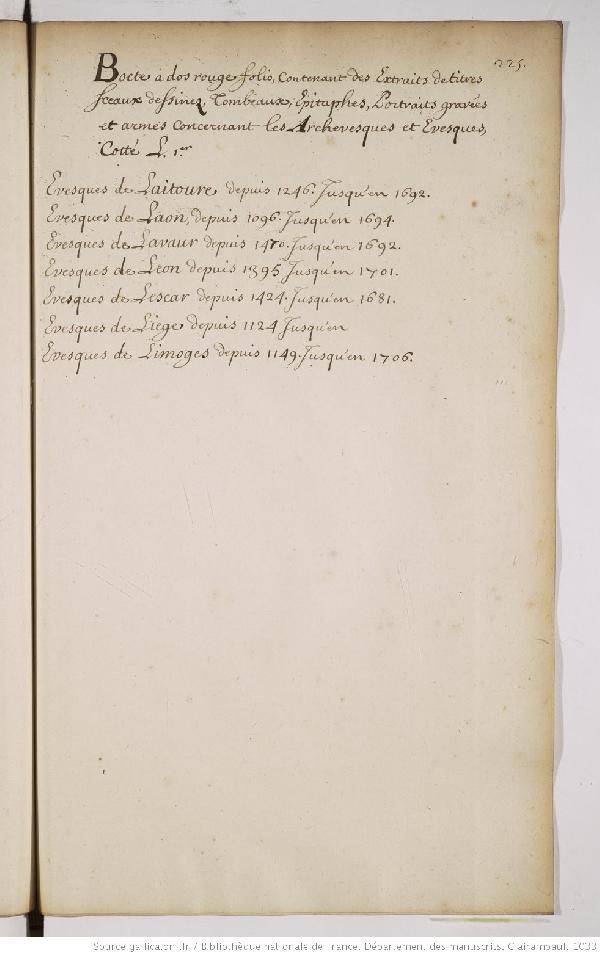 225.
Boete à dos rouge folio, Contenant des Extraits de titres
sceaux dessinez, Tombeaux, Epitaphes, Portraits gravés
et armes Concernant les Archevesques et Evesques,
Cotté L. 1.er
Evesques de Laitoure depuis 1246. Jusqu'en 1692.
Evesques de Laon, depuis 1096. Jusqu'en 1694.
Evesques de Lavaur depuis 1470. Jusqu'en 1692.
Evesques de Leon depuis 1395 Jusqu'en 1701.
Evesques de Lescar depuis 1424. Jusqu'en 1681.
Evesques de Liege depuis 1124 Jusqu'en
Evesques de Limoges depuis 1149. Jusqu'en 1706.
Source gallica.bnf.fr / Bibliothèque nationale de France. Département des manuscrits. Clairambault 1033